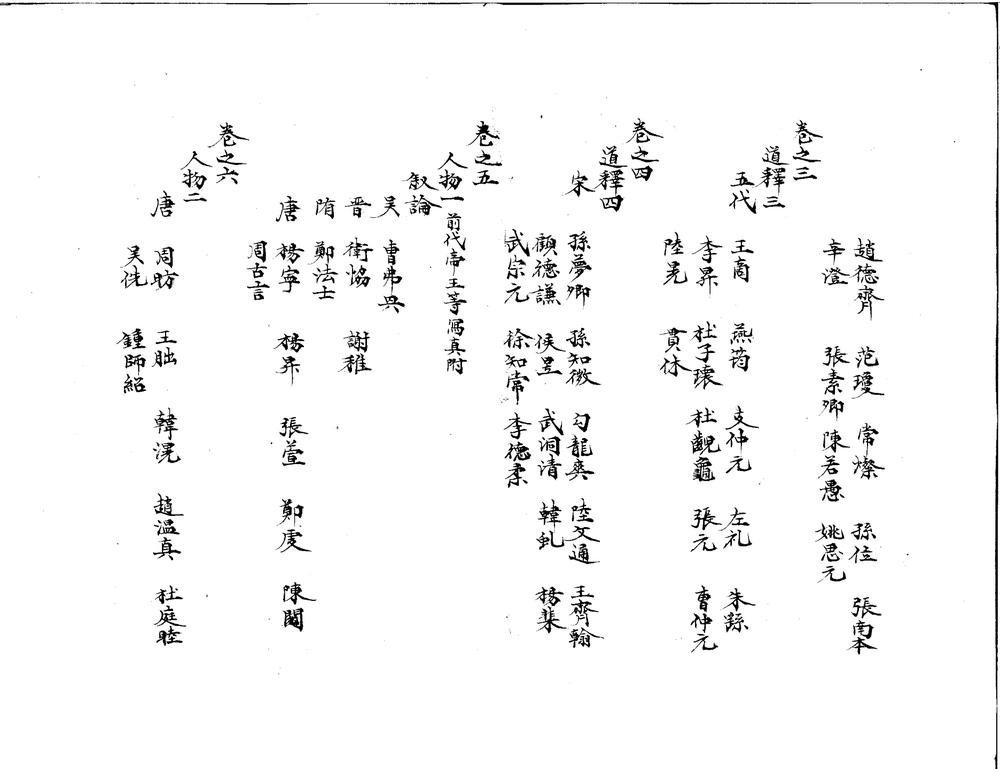 趙德齊 范瓊 常燦 孫位 張南本
辛澄 張素卿 陳若愚 姚思元
卷之三
道釋三
五代 王商 燕筠 支仲元 左礼 朱繇
李昇 杜子瓌 杜齯龜 張元 曹仲元
陸晃 貫休
卷之四
道釋四
宋 孫夢卿 孫知微 勾龍爽 陸文通 王齊翰
顧德謙 侯翌 武洞清 韓虬 楊棐
武宗元 徐知常 李德柔
卷之五
人物一 前代帝王等寫真附
叙論
吴 曹弗興
晋 衛恊 謝稚
隋 鄭法士
唐 楊寧 楊昇 張萱 鄭虔 陳閎
周古言
卷之六
人物二
唐 周昉 王朏 韓滉 趙温真 杜庭睦
吴侁 鍾師紹